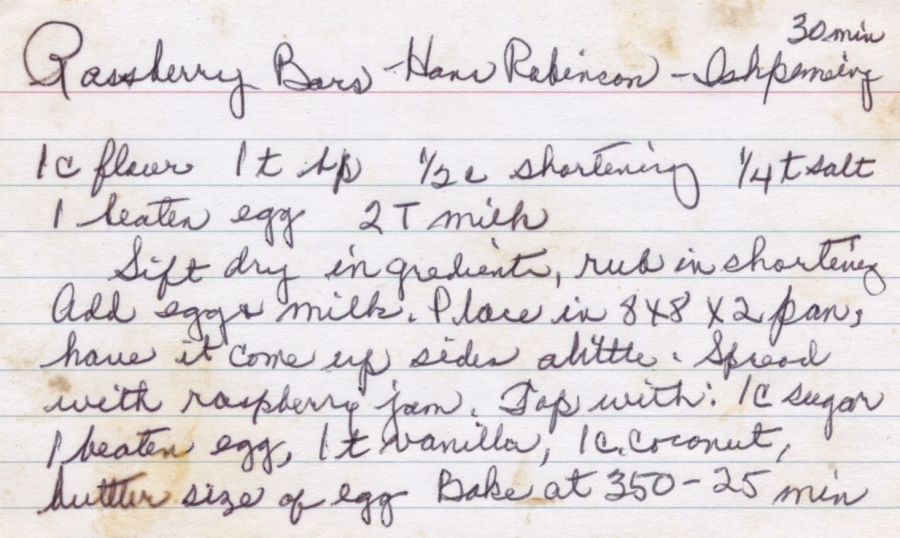 30 min
Raspberry Bars - Hans Robinson - Ishpeming
1 c flour 1 t bp 1/2 c shortening 1/4 t salt
1 beaten egg 2 T milk
Sift dry ingredients, rub in shortening
Add egg & milk. Place in 8x8x2 pan,
have it come up sides alittle. Spread
with raspberry jam. Top with: 1c sugar
1 beaten egg, 1 t vanilla, 1c. coconut,
butter size of egg Bake at 350 - 25 min